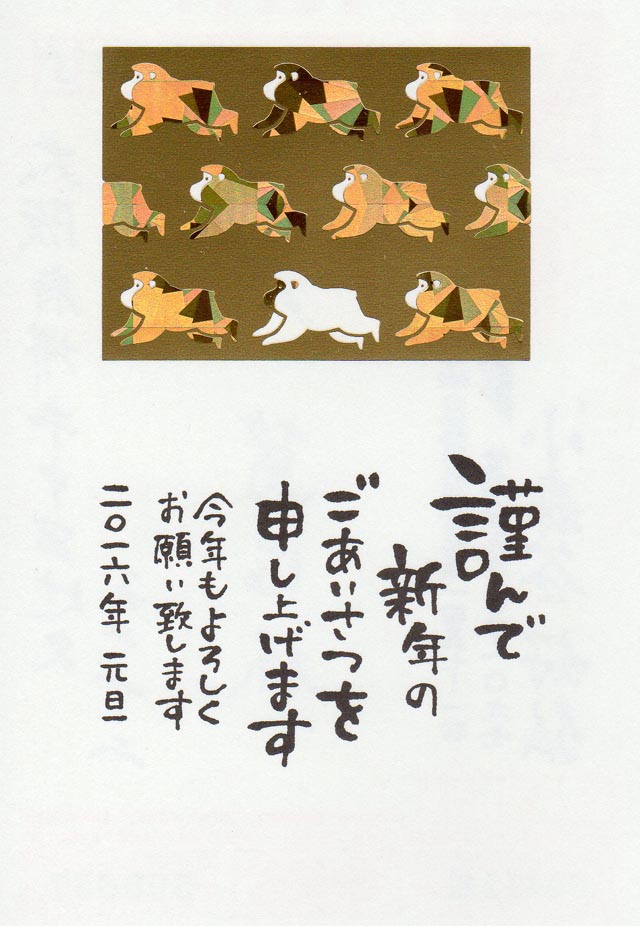 謹んで
新年の
ごあいさつを
申し上げます
今年もよろしく
お願い致します
二〇一六年 元旦